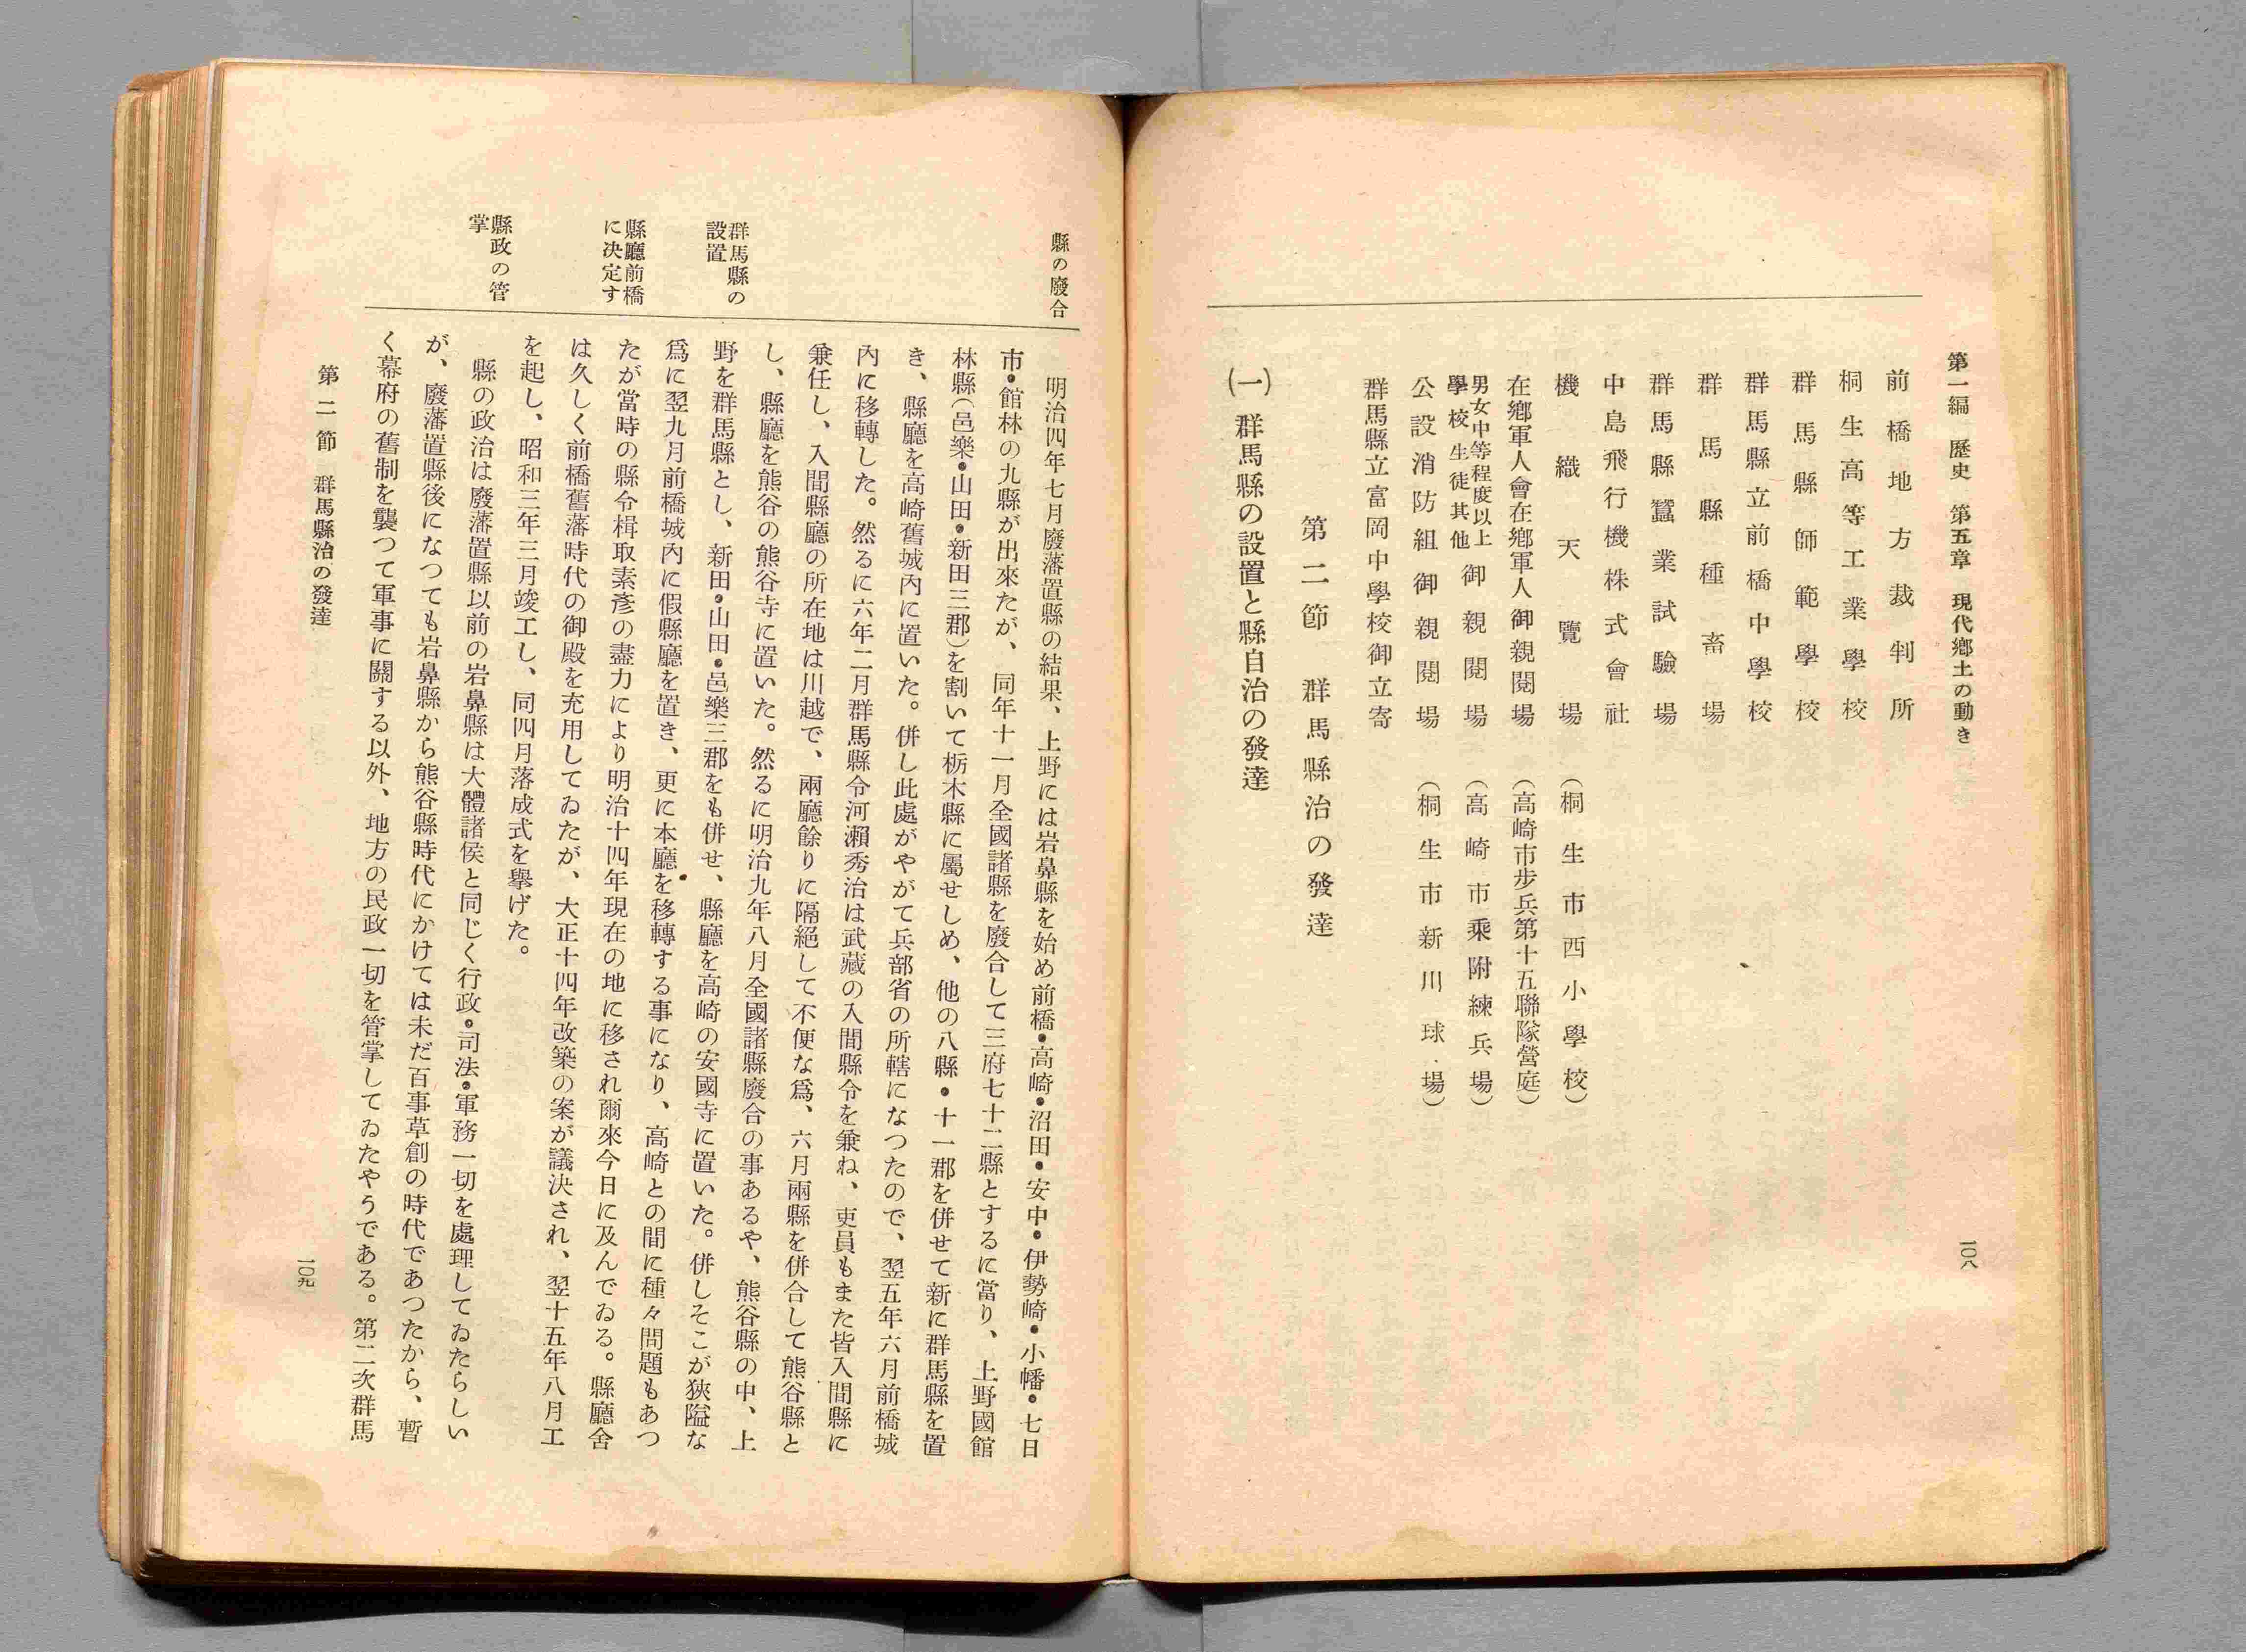 第一編　歷史　第五章　現代鄕土の動き
一〇八
前橋地方裁判所
桐生高等工業學校
群馬縣師範學校
群馬縣立前橋中學校
群馬縣種畜場
群馬縣蠶業試驗場
中島飛行機株式會社
機織天覽場　（桐生市西小學校）
在鄕軍人會在鄕軍人御親閱場　（高崎市步兵第十五聯隊營庭）
男女中等程度以上
學校生徒其他　御親閱場　（高崎市乘附練兵場）
公設消防組御親閱場　（桐生市新川球場）
群馬縣立富岡中學校御立寄
第二節　群馬縣治の發達
(一)　群馬縣の設置と縣自治の發達
縣の廢合
明治四年七月廢藩置縣の結果、上野には岩鼻縣を始め前橋・高崎・沼田・安中・伊勢崎・小幡・七日
市・館林の九縣が出來たが、同年十一月全國諸縣を廢合して三府七十二縣とするに當り、上野國館
林縣（邑樂・山田・新田三郡）を割いて栃木縣に屬せしめ、他の八縣・十一郡を併せて新に群馬縣を置
き、縣廳を高崎舊城內に置いた。併し此處がやがて兵部省の所轄になつたので、翌五年六月前橋城
內に移轉した。然るに六年二月群馬縣令河瀨秀治は武藏の入間縣令を兼ね、吏員もまた皆入間縣に
兼任し、入間縣廳の所在地は川越で、兩廳餘りに隔絕して不便な爲、六月兩縣を併合して熊谷縣と
し、縣廳を熊谷の熊谷寺に置いた。然るに明治九年八月全國諸縣廢合の事あるや、熊谷縣の中、上
群馬縣の
設置
野を群馬縣とし、新田・山田・邑樂三郡をも併せ、縣廳を高崎の安國寺に置いた。併しそこが狹隘な
爲に翌九月前橋城內に假縣廳を置き、更に本廳を移轉する事になり、高崎との間に種々問題もあつ
縣廳前橋
に決定す
たが當時の縣令楫取素彥の盡力により明治十四年現在の地に移され爾來今日に及んでゐる。縣廳舍
は久しく前橋舊藩時代の御殿を充用してゐたが、大正十四年改築の案が議決され、翌十五年八月工
を起し、昭和三年三月竣工し、同四月落成式を擧げた。
縣政の管
掌
縣の政治は廢藩置縣以前の岩鼻縣は大體諸侯と同じく行政・司法・軍務一切を處理してゐたらしい
が、廢藩置縣後になつても岩鼻縣から熊谷縣時代にかけては未だ百事草創の時代であつたから、暫
く幕府の舊制を襲つて軍事に關する以外、地方の民政一切を管掌してゐたやうである。第二次群馬
第二節　群馬縣治の發達
一〇九